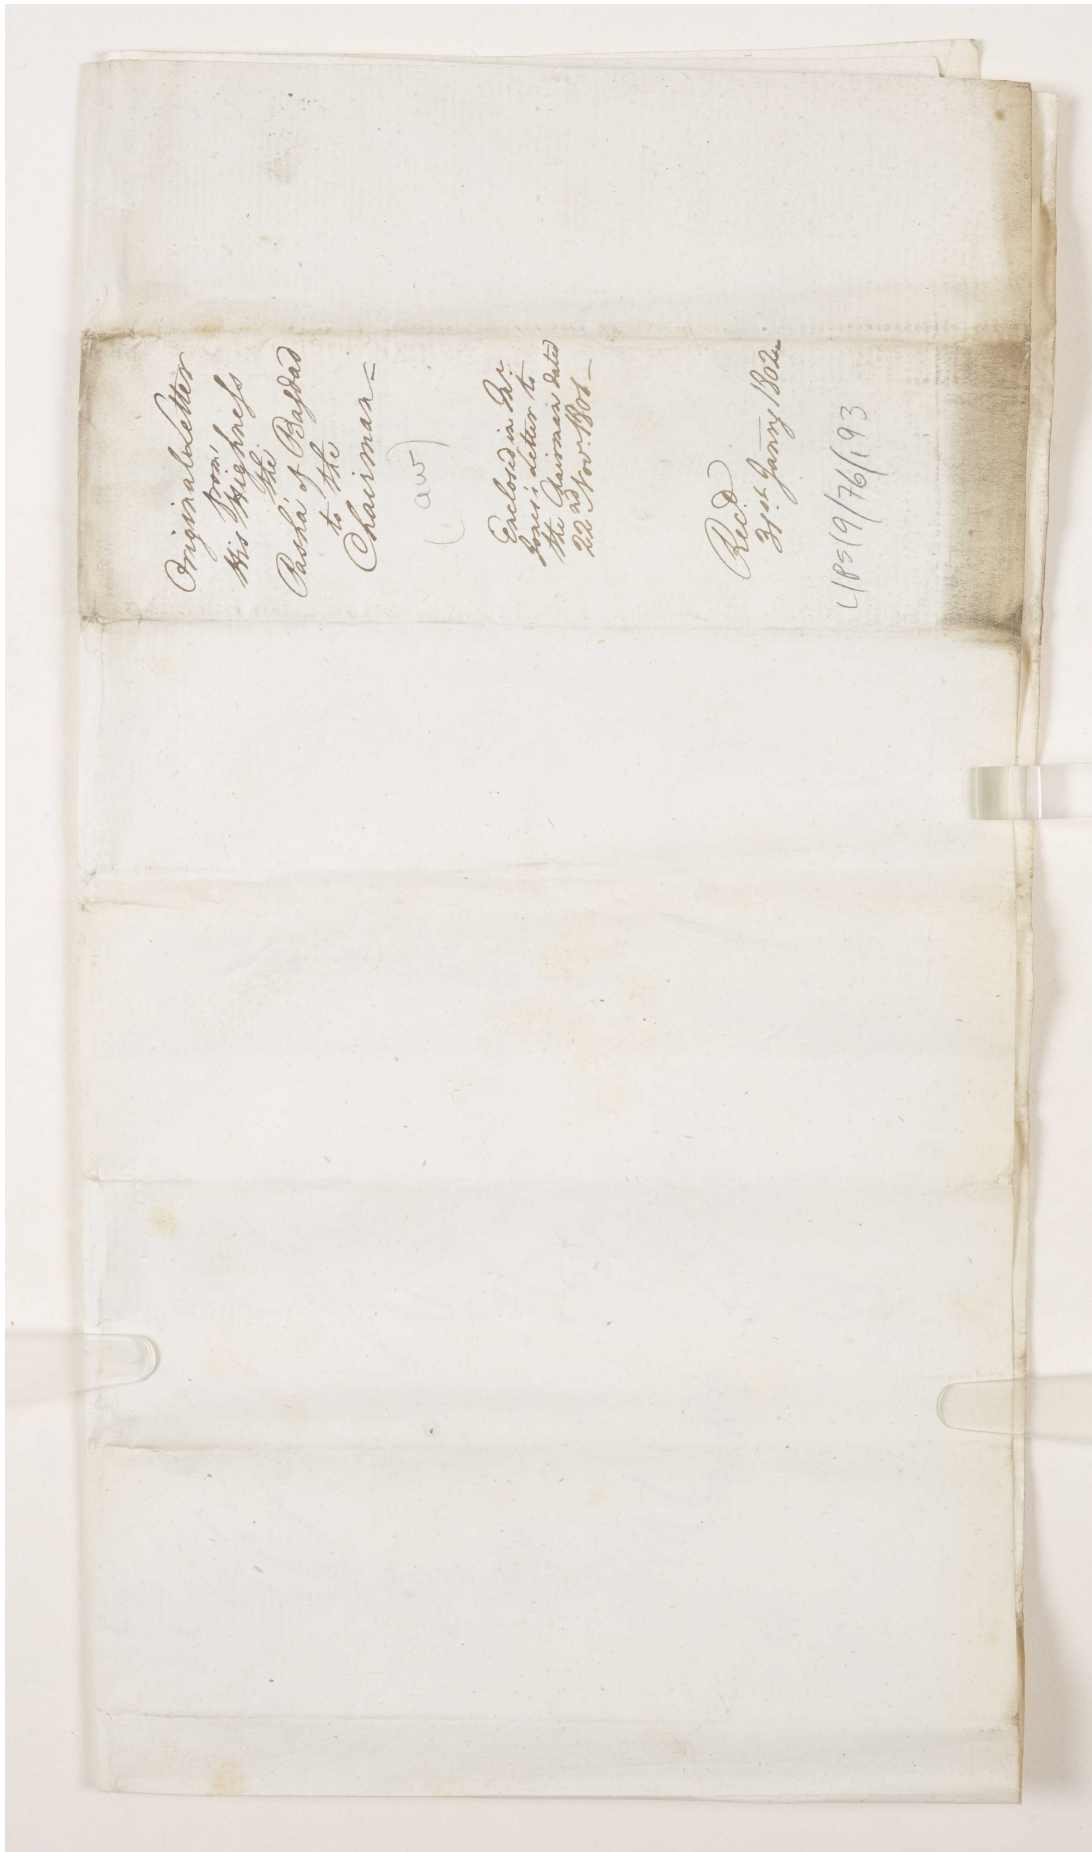 Original Letter
from
His Highness
the
Pasha of Bagdad
to the
Chairman =
(aw)
Enclosed in Mr.
Jones's Letter to
the Chairman dated
22nd Novr. 1801 —
Recd.
31st Janry 1802
L/PS/9/76/193